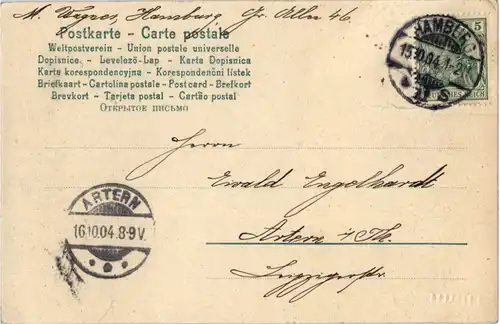 M. Wegner, Hamburg, Gr. Allee 46.
Postkarte - Carte postale
Weltpostverein - Union postale universelle
Dopisnice. - Levelező-Lap - Karta Dopisnica
Karta korespondencyjna - Korespondenční lístek
Briefkaart - Cartolina postale - Postcard - Brefkort
Brevkort - Tarjeta postal - Cartão postal
Открытое письмо
5
HAMBURG
15.10.04.1-2
REICH
Herrn
Ewald Engelhardt
ARTERN
16.10.04.8-9V.
Artern i/Th.
Leipzigerstr.